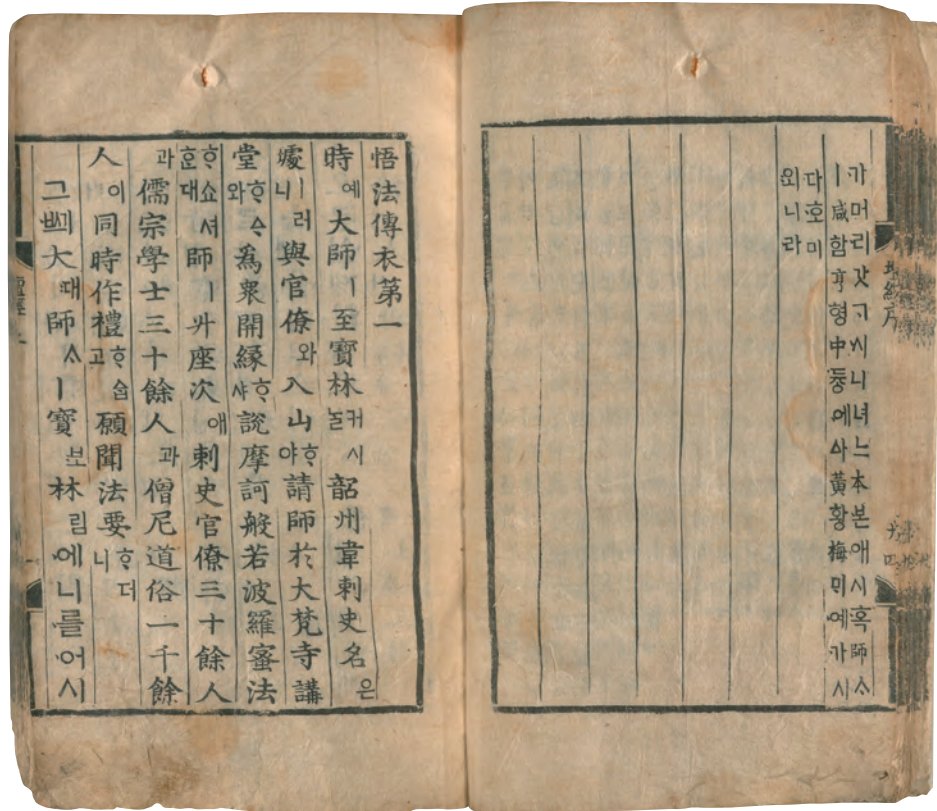 가머리갓ᄀᆞ시니녀느本본애시혹師ᄉᆞ
ㅣ咸함亨형中듀ᇰ에ᅀᅡ黃황梅ᄆᆡ예가시
다호미
외니라
壇經序
悟法傳衣第一
時예大師ㅣ至寶林커시ᄂᆞᆯ韶州韋刺史名은
璩ㅣ러니與官僚와入山ᄒᆞ야請師於大梵寺講
堂ᄒᆞᅀᆞ와爲衆開緣ᄒᆞ샤說摩訶般若波羅蜜法
ᄒᆞ쇼셔ᄒᆞᆫ대師ㅣ升座次애刺史官僚三十餘人
과儒宗學士三十餘人과僧尼道俗一千餘
人이同時作禮ᄒᆞᅀᆞᆸ고願聞法要ᄒᆞ더니
그ᄢᅴ大때師ᄉᆞㅣ寶보林림에니를어시